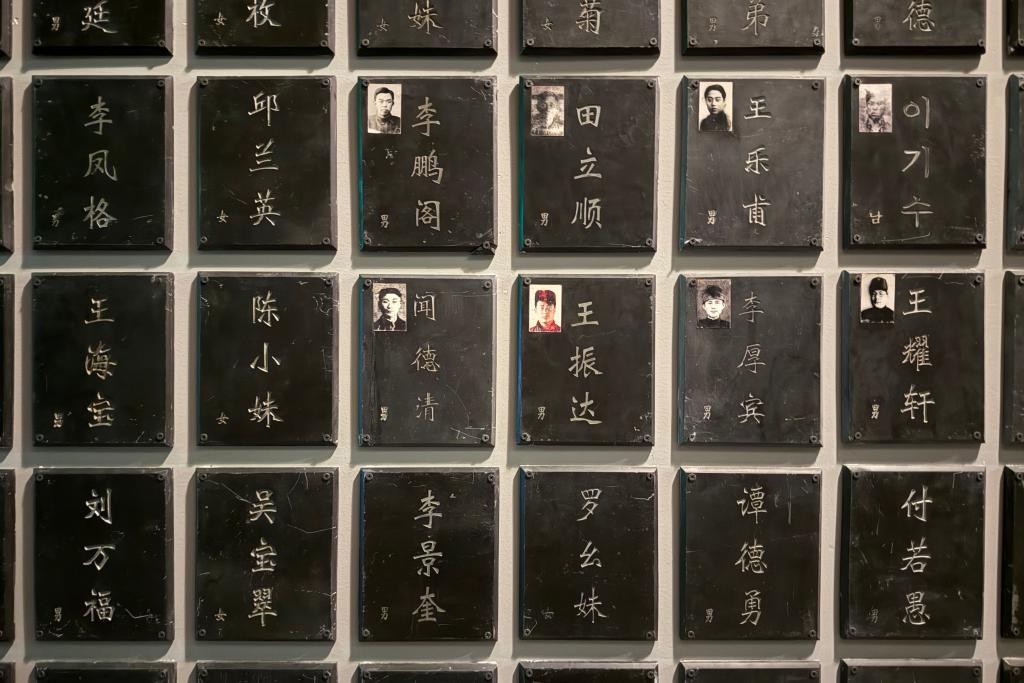 廷
枚
女
妹
女
菊
女
弟
男
德
男
李凤格
男
邱兰英
女
李鹏阁
男
田立顺
男
王乐甫
男
이기수
남
王海宝
男
陈小妹
女
闻德清
男
王振达
男
李厚宾
男
王耀轩
男
刘万福
男
吴宝翠
女
李景奎
男
罗幺妹
女
谭德勇
男
付若愚
男